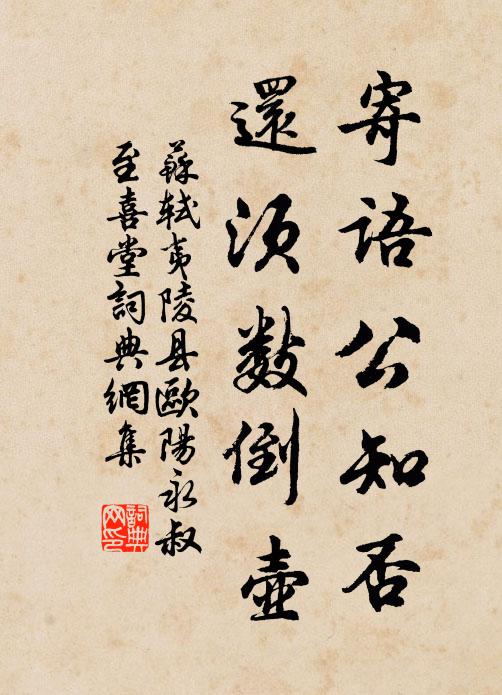 寄語公知否
還須數倒壺
蘇軾夷陵县歐陽永叔
至喜堂詞典網集
詞典网印